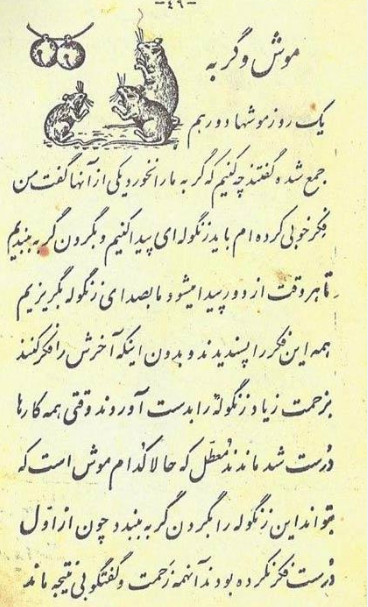 -٤٦-
موش و گربه
یک روز موشها دور هم
جمع شده گفتند چه کنیم که گربه ما را نخورد یکی از آنها گفت من
فکر خوبی کرده ام باید زنگوله ای پیدا کنیم و بگردن گربه ببندیم
تا هر وقت از دور پیدا میشود ما بصدای زنگوله بگریزیم
همه این فکر را پسندیدند و بدون اینکه آخرش را فکر کنند
بزحمت زیاد زنگوله را بدست آوردند وقتی همه کارها
دُرست شد ماندند مُعطّل که حالا کُدام موش است که
بتواند این زنگوله را بگردن گربه ببندد چون از اوّل
دُرست فکر نکرده بودند آنهمه زَحمت و گفتگو بی نتیجه ماند